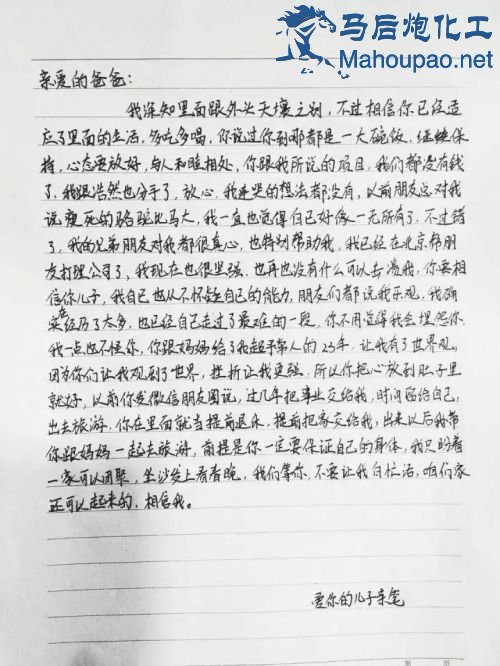 马后炮化工
Mahoupao.net
亲爱的爸爸:
我深知里面跟外头天壤之别,不过相信你已经适
应了里面的生活,多吃多喝,你说过你到哪都是一大碗饭,继续保
持,心态要放好,与人和睦相处,你跟我所说的项目,我们都没有钱
了,我跟浩然也分手了,放心,我连哭的想法都没有,以前朋友总对我
说瘦死的骆驼比马大,我一直也觉得自己好像一无所有了,不过错
了,我的兄弟朋友对我都很真心,也特别帮助我,我已经在北京帮朋
友打理公司了,我现在也很坚强,也再也没有什么可以击溃我,你要相
信你儿子,我自己也从不怀疑自己的能力,朋友们都说我乐观,我确
实在经历了太多,也已经自己走过了最难的一段,你不用觉得我会埋怨你,
我一点也不怪你,你跟妈妈给了我超乎常人的23年,让我有了世界观,
因为你们让我观到了世界,挫折让我更强,所以你把心放到肚子里
就好,以前你发微信朋友圈说,过几年把事业交给我,时间留给自己,
出去旅游,你在里面就当提前退休,提前把家交给我,出来以后我带
你跟妈妈一起去旅游,前提是你一定要保证自己的身体,我只盼着
一家可以团聚,坐沙发上看春晚,我们等你,不要让我白忙活,咱们家
还可以起来的,相信我。
爱你的儿子亲笔